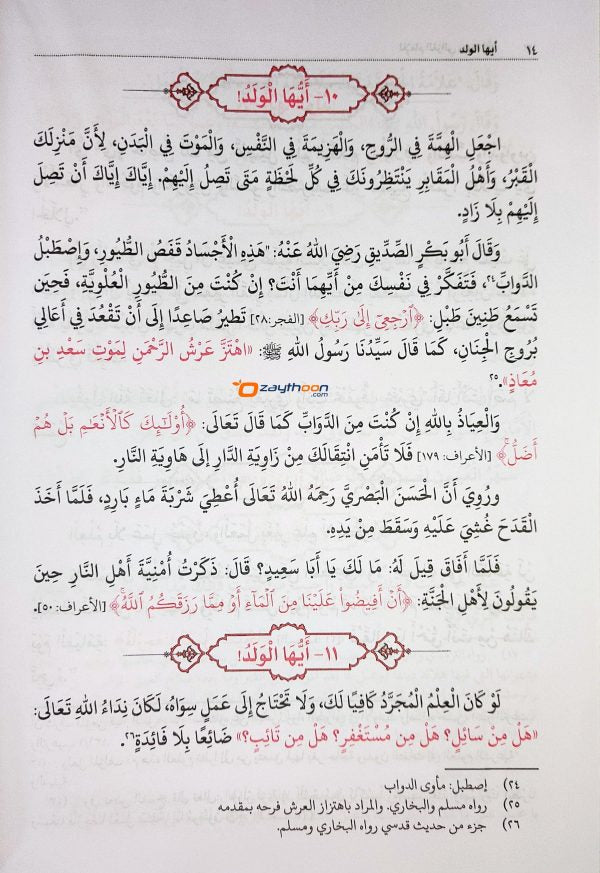 ١٤ أيها الولد
١٠- أَيُّهَا الْوَلَدُ!
اجْعَلِ الْهِمَّةَ فِي الرُّوحِ، وَالْهَزِيمَةَ فِي النَّفْسِ، وَالْمَوْتَ فِي الْبَدَنِ، لِأَنَّ مَنْزِلَكَ
الْقَبْرُ، وَأَهْلُ الْمَقَابِرِ يَنْتَظِرُونَكَ فِي كُلِّ لَحْظَةٍ مَتَى تَصِلُ إِلَيْهِمْ. إِيَّاكَ إِيَّاكَ أَنْ تَصِلَ
إِلَيْهِمْ بِلَا زَادٍ.
وَقَالَ أَبُو بَكْرٍ الصِّدِّيقِ رَضِيَ اللهُ عَنْهُ: "هَذِهِ الْأَجْسَادُ قَفَصُ الطُّيُورِ، وَإِصْطَبْلُ
الدَّوَابِّ٢٤، فَتَفَكَّرْ فِي نَفْسِكَ مِنْ أَيِّهِمَا أَنْتَ؟ إِنْ كُنْتَ مِنَ الطُّيُورِ الْعُلْوِيَّةِ، فَحِينَ
تَسْمَعُ طَنِينَ طَبْلِ: ﴿ٱرْجِعِىٓ إِلَىٰ رَبِّكِ﴾ [الفجر:٢٨] تَطِيرُ صَاعِدًا إِلَى أَنْ تَقْعُدَ فِي أَعَالِي
بُرُوجِ الْجِنَانِ، كَمَا قَالَ سَيِّدُنَا رَسُولُ اللهِ ﷺ: «اهْتَزَّ عَرْشُ الرَّحْمَنِ لِمَوْتِ سَعْدِ بنِ
مُعَاذٍ»٢٥.
Ozaythoon
.com
وَالْعِيَاذُ بِاللهِ إِنْ كُنْتَ مِنَ الدَّوَابِّ كَمَا قَالَ تَعَالَى: ﴿أُوْلَـٰٓئِكَ كَٱلْأَنْعَـٰمِ بَلْ هُمْ
أَضَلُّ﴾ [الأعراف: ١٧٩] فَلَا تَأْمَنِ انْتِقَالَكَ مِنْ زَاوِيَةِ الدَّارِ إِلَى هَاوِيَةِ النَّارِ.
وَرُوِيَ أَنَّ الْحَسَنَ الْبَصْرِيَّ رَحِمَهُ اللهُ تَعَالَى أُعْطِيَ شَرْبَةَ مَاءٍ بَارِدٍ، فَلَمَّا أَخَذَ
الْقَدَحَ غُشِيَ عَلَيْهِ وَسَقَطَ مِنْ يَدِهِ.
فَلَمَّا أَفَاقَ قِيلَ لَهُ: مَا لَكَ يَا أَبَا سَعِيدٍ؟ قَالَ: ذَكَرْتُ أُمْنِيَّةَ أَهْلِ النَّارِ حِينَ
يَقُولُونَ لِأَهْلِ الْجَنَّةِ: ﴿أَنْ أَفِيضُواْ عَلَيْنَا مِنَ ٱلْمَآءِ أَوْ مِمَّا رَزَقَكُمُ ٱللَّهُ﴾ [الأعراف: ٥٠].
١١- أَيُّهَا الْوَلَدُ!
لَوْ كَانَ الْعِلْمُ الْمُجَرَّدُ كَافِيًا لَكَ، وَلَا تَحْتَاجُ إِلَى عَمَلٍ سِوَاهُ، لَكَانَ نِدَاءُ اللهِ تَعَالَى:
«هَلْ مِنْ سَائِلٍ؟ هَلْ مِن مُسْتَغْفِرٍ؟ هَلْ مِن تَائِبٍ؟» ضَائِعًا بِلَا فَائِدَةٍ٢٦.
٢٤) إصطبل: مأوى الدواب
٢٥) رواه مسلم والبخاري. والمراد باهتزاز العرش فرحه بمقدمه
٢٦) جزء من حديث قدسي رواه البخاري ومسلم.